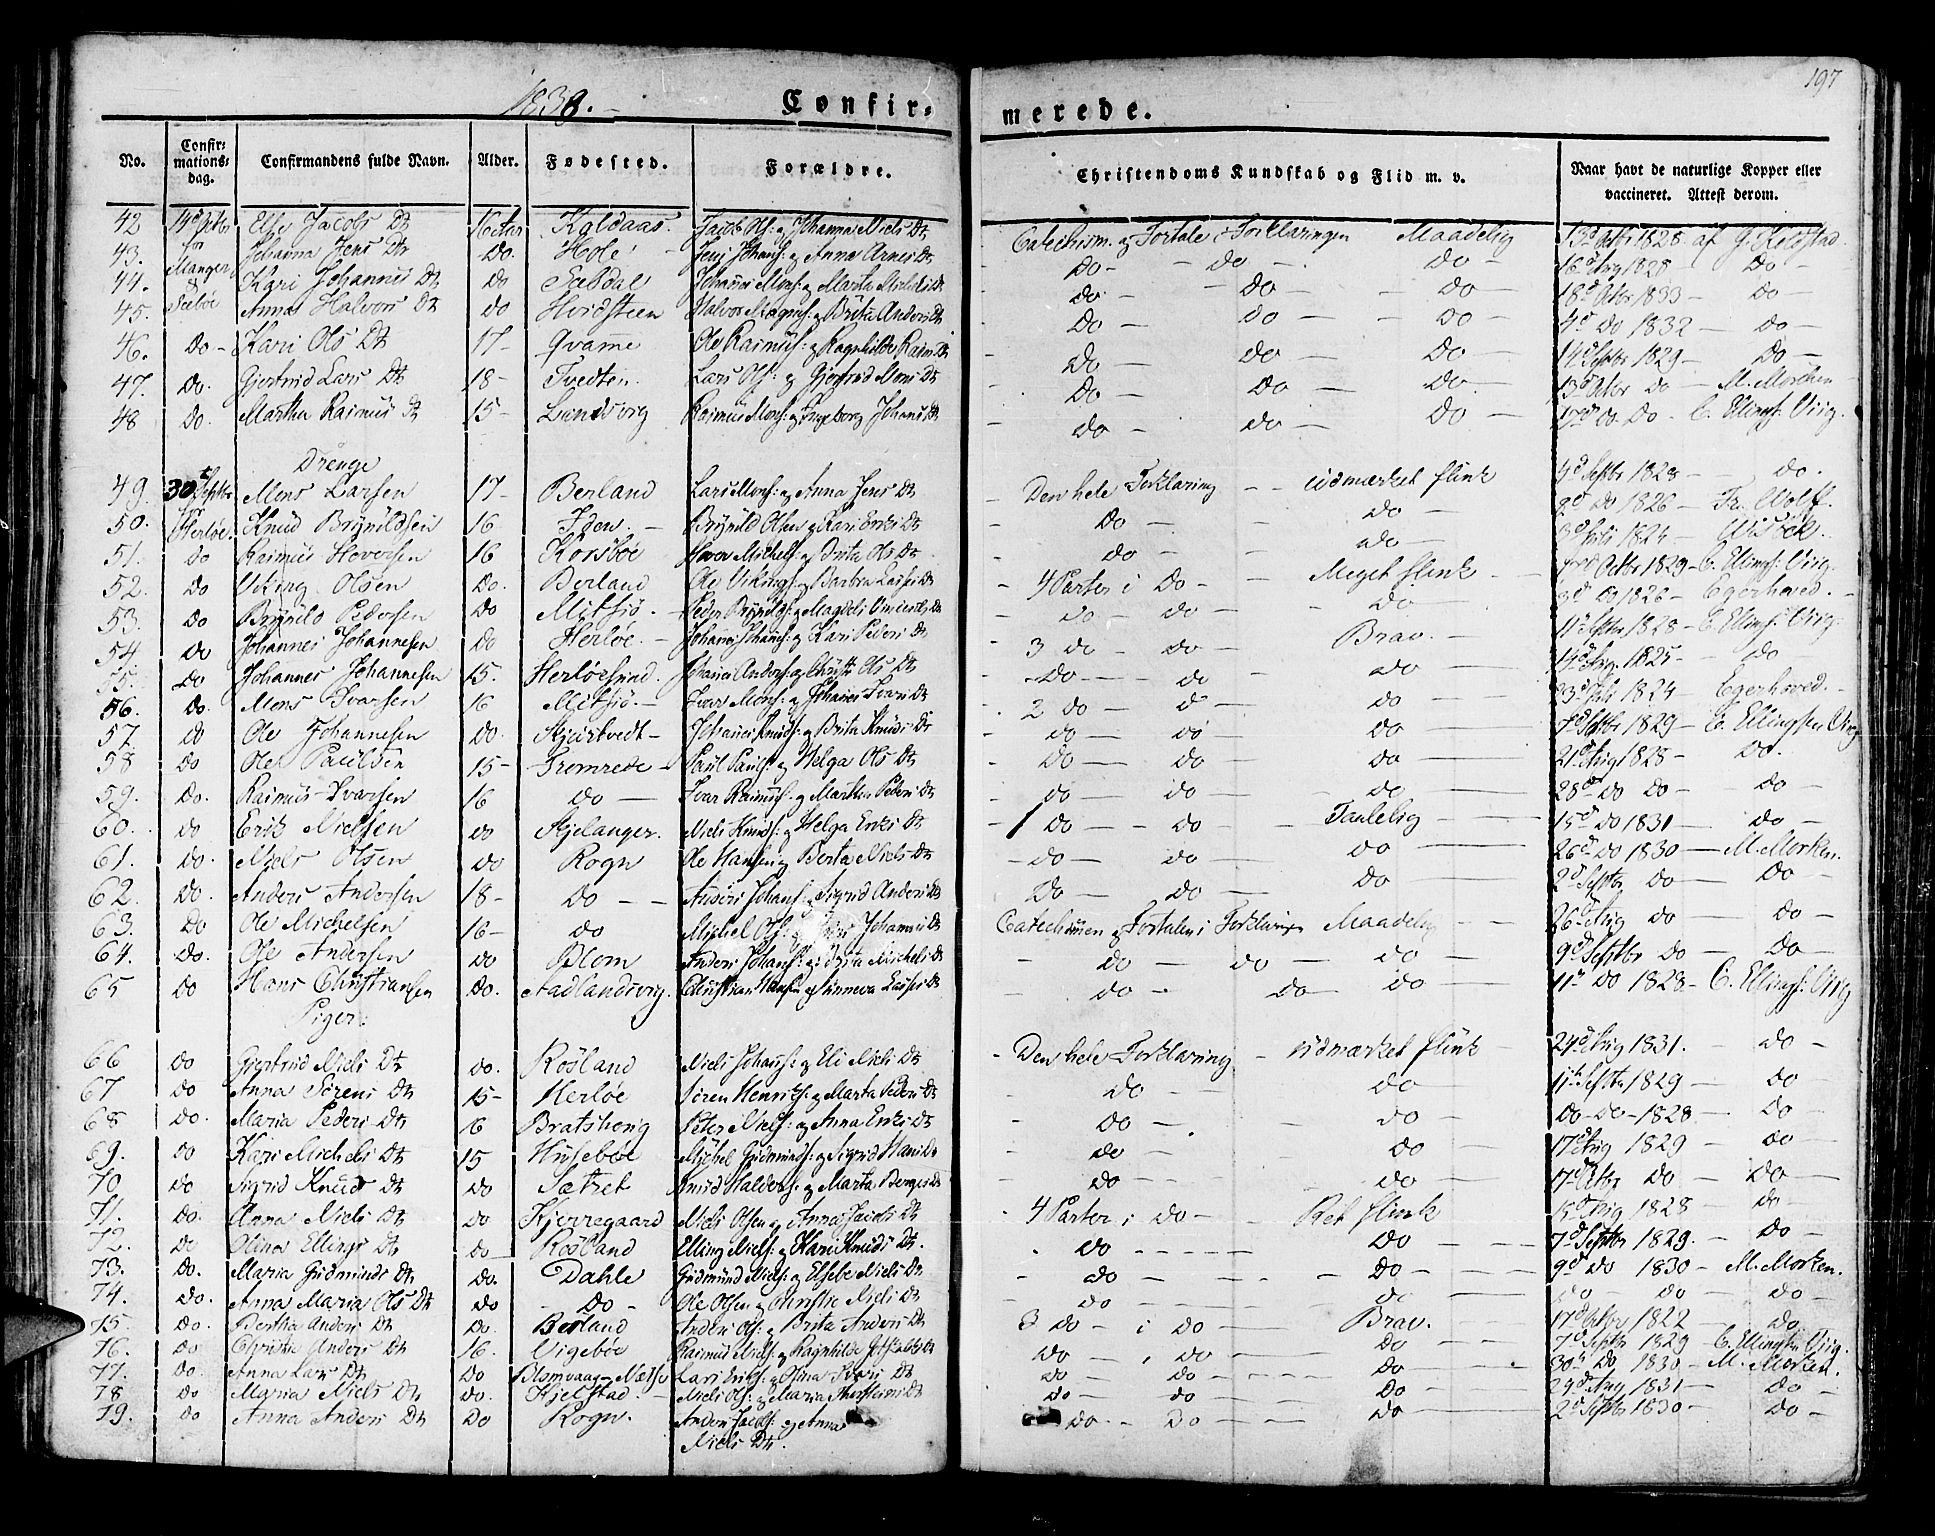 197
1838. Confirmerede.
No. | Confirmationsdag. | Confirmandens fulde Navn. | Alder. | Fødested. | Forældre. | Christendoms Kundskab og Flid m. v. | Naar havt de naturlige Kopper eller vaccineret. Attest derom.
42 | 14d Octbr | Else Jacobs Dt | 16 Aar | Kaldaas. | Jacob Ols: og Johanna Niels Dt | Catechism. og Fortale i Forklaringen Maadelig | 13d Octbr 1828 af G. Koldstad
43. | for | Johanna Jens Dt | Do. | Hole | Jens Johans: og Anna Arnes Dt | Do - do - do - | 16d Aug 1828 - Do -
44. | Manger & | Kari Johannes Dt | Do | Sebdal | Johannes Mons: og Marta Michels Dt | do - do - do - | 18d Octbr 1833 - do -
45. | Sæbøe | Anna Halvors Dt | do | Hvidsteen | Halvor Magns: og Brita Anders Dt | Do - do - do - | 4d do 1832 - do -
46. | do - | Kari Ols Dt | 17 - | Qvame | Ole Rasmus: og Ragnhilde Rasm. Dt | do - do - Do - | 14d Septbr 1829 - Do -
47. | do. | Gjertrud Lars Dt | 18 - | Tvedten. | Lars Ols: og Gjertrud Mons Dt | Do - Do - do. - | 13d Octbr do - M. Morken -
48 | Do. | Martha Rasmus Dt | 15 - | Lundsvig | Rasmus Mons: og Ingeborg Johans Dt | do - do - do - | 17d do. Do. C. Ellings: Virig.
Drenge
49. | 30t Septbr | Mons Larsen | 17 - | Berland | Lars Mons: og Anna Jens Dt | Den hele Forklaring - - udmærket flink | 4d Septbr 1828 - do.
50. | for Herløe. | Knud Brynildsen | 16 | Iden. - | Brynild Olsen og Kari Eriks Dt | Do - do - | 2d do 1826 - Fr. Wolff.
51. | do | Rasmus Hoversen | 16 | Korsbøe | Hover Michels: og Brita Ols Dt | do - do - | 3d Juli 1824 - Wisbök.
52. | do | Viking Olsen | Do. | Berland | Ole Vikings: og Barbra Lasses Dt | 4 Parter i Do - - Meget flink | Octbr 1829 - C. Ellings: Virig.
53. | do | Brynild Pedersen | do | Mitsjø. - | Peder Brynilds: og Magdeli Vincents Dt | - do - do - - do | 3d do 1826 - Egerhoved. -
54 | do | Johannes Johannesen | do | Herløe. - | Johannes Johans: og Kari Peders Dt | 3 do - do - Brav. - | 11d Septbr 1828 - C. Ellings: Virig.
55. | do | Johannes Johannesen | 15. | Herløesund. | Johannes Anders: og Ols Dt | - do - - - do do - | 14d Aug. 1825 - do
56. | do. | Mons Ivarsen | 16 | Mitsjø. - | Ivar Mons: og Johanna Ivars Dt | 2 do - do - do - | 23d Juli 1824 - Egerhoved. -
57. | do | Ole Johannesen | do. | Skjærtvedt - | Johannes Knuds: og Brita Knuds Dt | do - do - do - | 7d Septbr 1829 - C. Ellingsen Virig
58 | do | Ole Paulsen | 15 - | Tremrede - | Paul Pauls: og Helga Ols Dt | do - do - do - | 21d Aug 1828 - do.
59. | Do. | Rasmus Ivarsen | 16 | do - | Ivar Rasmus: og Martha Peders Dt | - do - do - - do - | 28d do do - - do -
60. | do | Erik Nielsen | do | Skjelanger. | Niels Knuds: og Helga Eriks Dt | 1 do - - do - - Taalelig - | 15d do 1831 - do -
61. | do. | Niels Olsen | do | Rogn | Ole Hansen og Berta Niels Dt | - do - do - do - | 26d do 1830 - M. Morken.
62. | Do. | Anders Andersen | 18 - | do - - | Anders Johans: og Sigrid Anders Dt | Do - do - do - | 2d Septbr do - do -
63. | Do | Ole Michelsen | 16 - | do | Michel Ols: Johannes Dt | Catechismen og Fortalen i Forklaring Maadelig | 26d Aug do - do -
64. | do. | Ole Andersen | do | Blom | Anders Johans: og Brita Michels Dt | - do - do - do - | 9d Septbr do - do -
65 | do | Hans Christiansen | do. | Aadlandsvig. | Christian Hansen og Sünneva Lasses Dt | - do - do - do - | 11te do 1828 - C. Ellings: Virig
Piger.
66 | do | Gjertrud Niels Dt | do. | Rosland | Niels Johans: og Eli Niels Dt | - Den hele Forklaring - udmærket flink - | 24d Aug 1831. - do -
67 | do | Anna Sørens Dt | 15 - | Herløe | Søren Henriks: og Marta Peders Dt | do - do - | 11te Septbr 1829 - do
68 | do. | Maria Peders Dt | 16 | Bratshong | Peter Niels: og Anna Eriks Dt | do - do - | do - do - 1828. - do
69. | do | Kari Michels Dt | 15 | Husebøe | Michel Gudmunds: og Sigrid Hans Dt | do - do - | 17d Aug 1829 - do -
70 | do | Sigrid Knuds Dt | do | Sætret | Knud Halvers: og Marta Børges Dt | do - do - | 17d Octbr do - do -
71. | do. | Anna Niels Dt | do | Kjerregaard | Niels Olsen og Anna Jacobs Dt | 4 Parter i do - - Ret flink | 15d Aug 1828 - do -
72. | do | Olina Ellings Dt | do - | Rosland | Elling Niels: og Kari Knuds Dt. | do - - - - - do - | 7d Septbr 1829. - do -
73. | do. | Maria Gudmunds Dt | do. | Dahle | Gudmund Niels: og Elsebe Niels Dt | do - - do - | 9d do 1830 - M. Morken.
74. | do. | Anna Maria Ols Dt | do | - do - | Ole Olsen og Christie Niels Dt | do - - - do - | do - do - do -
75. | do. | Bertha Anders Dt | do. | Berland | Anders Ols: og Brita Anders Dt | 3 do - i do - Brav. - | 17d Octbr 1822 - do
76. | do | Christie Anders Dt | 16. | Vigebøe | Rasmus Niels: og Ragnhilde Dt | do - , do - - do - | 7d Septbr 1829 C. Ellingsen Virig.
77. | do. | Anna Lars Dt | Do | Blomvaag-Næsse | Lars Eriks: og Olina Ivars Dt | do - do - - - - do - | 30te do 1830 - M. Morken.
78 | do | Maria Niels Dt | do. | Kjelstad. - | Niels Ols: og Maria Dt | do - do - do - | 29d Aug 1831 - do -
79. | do | Anna Anders Dt | Do | Rogn. | Anders Jacobs: og Anna Niels Dt. | do. - do - - do - | 2d Septbr 1830 - do -